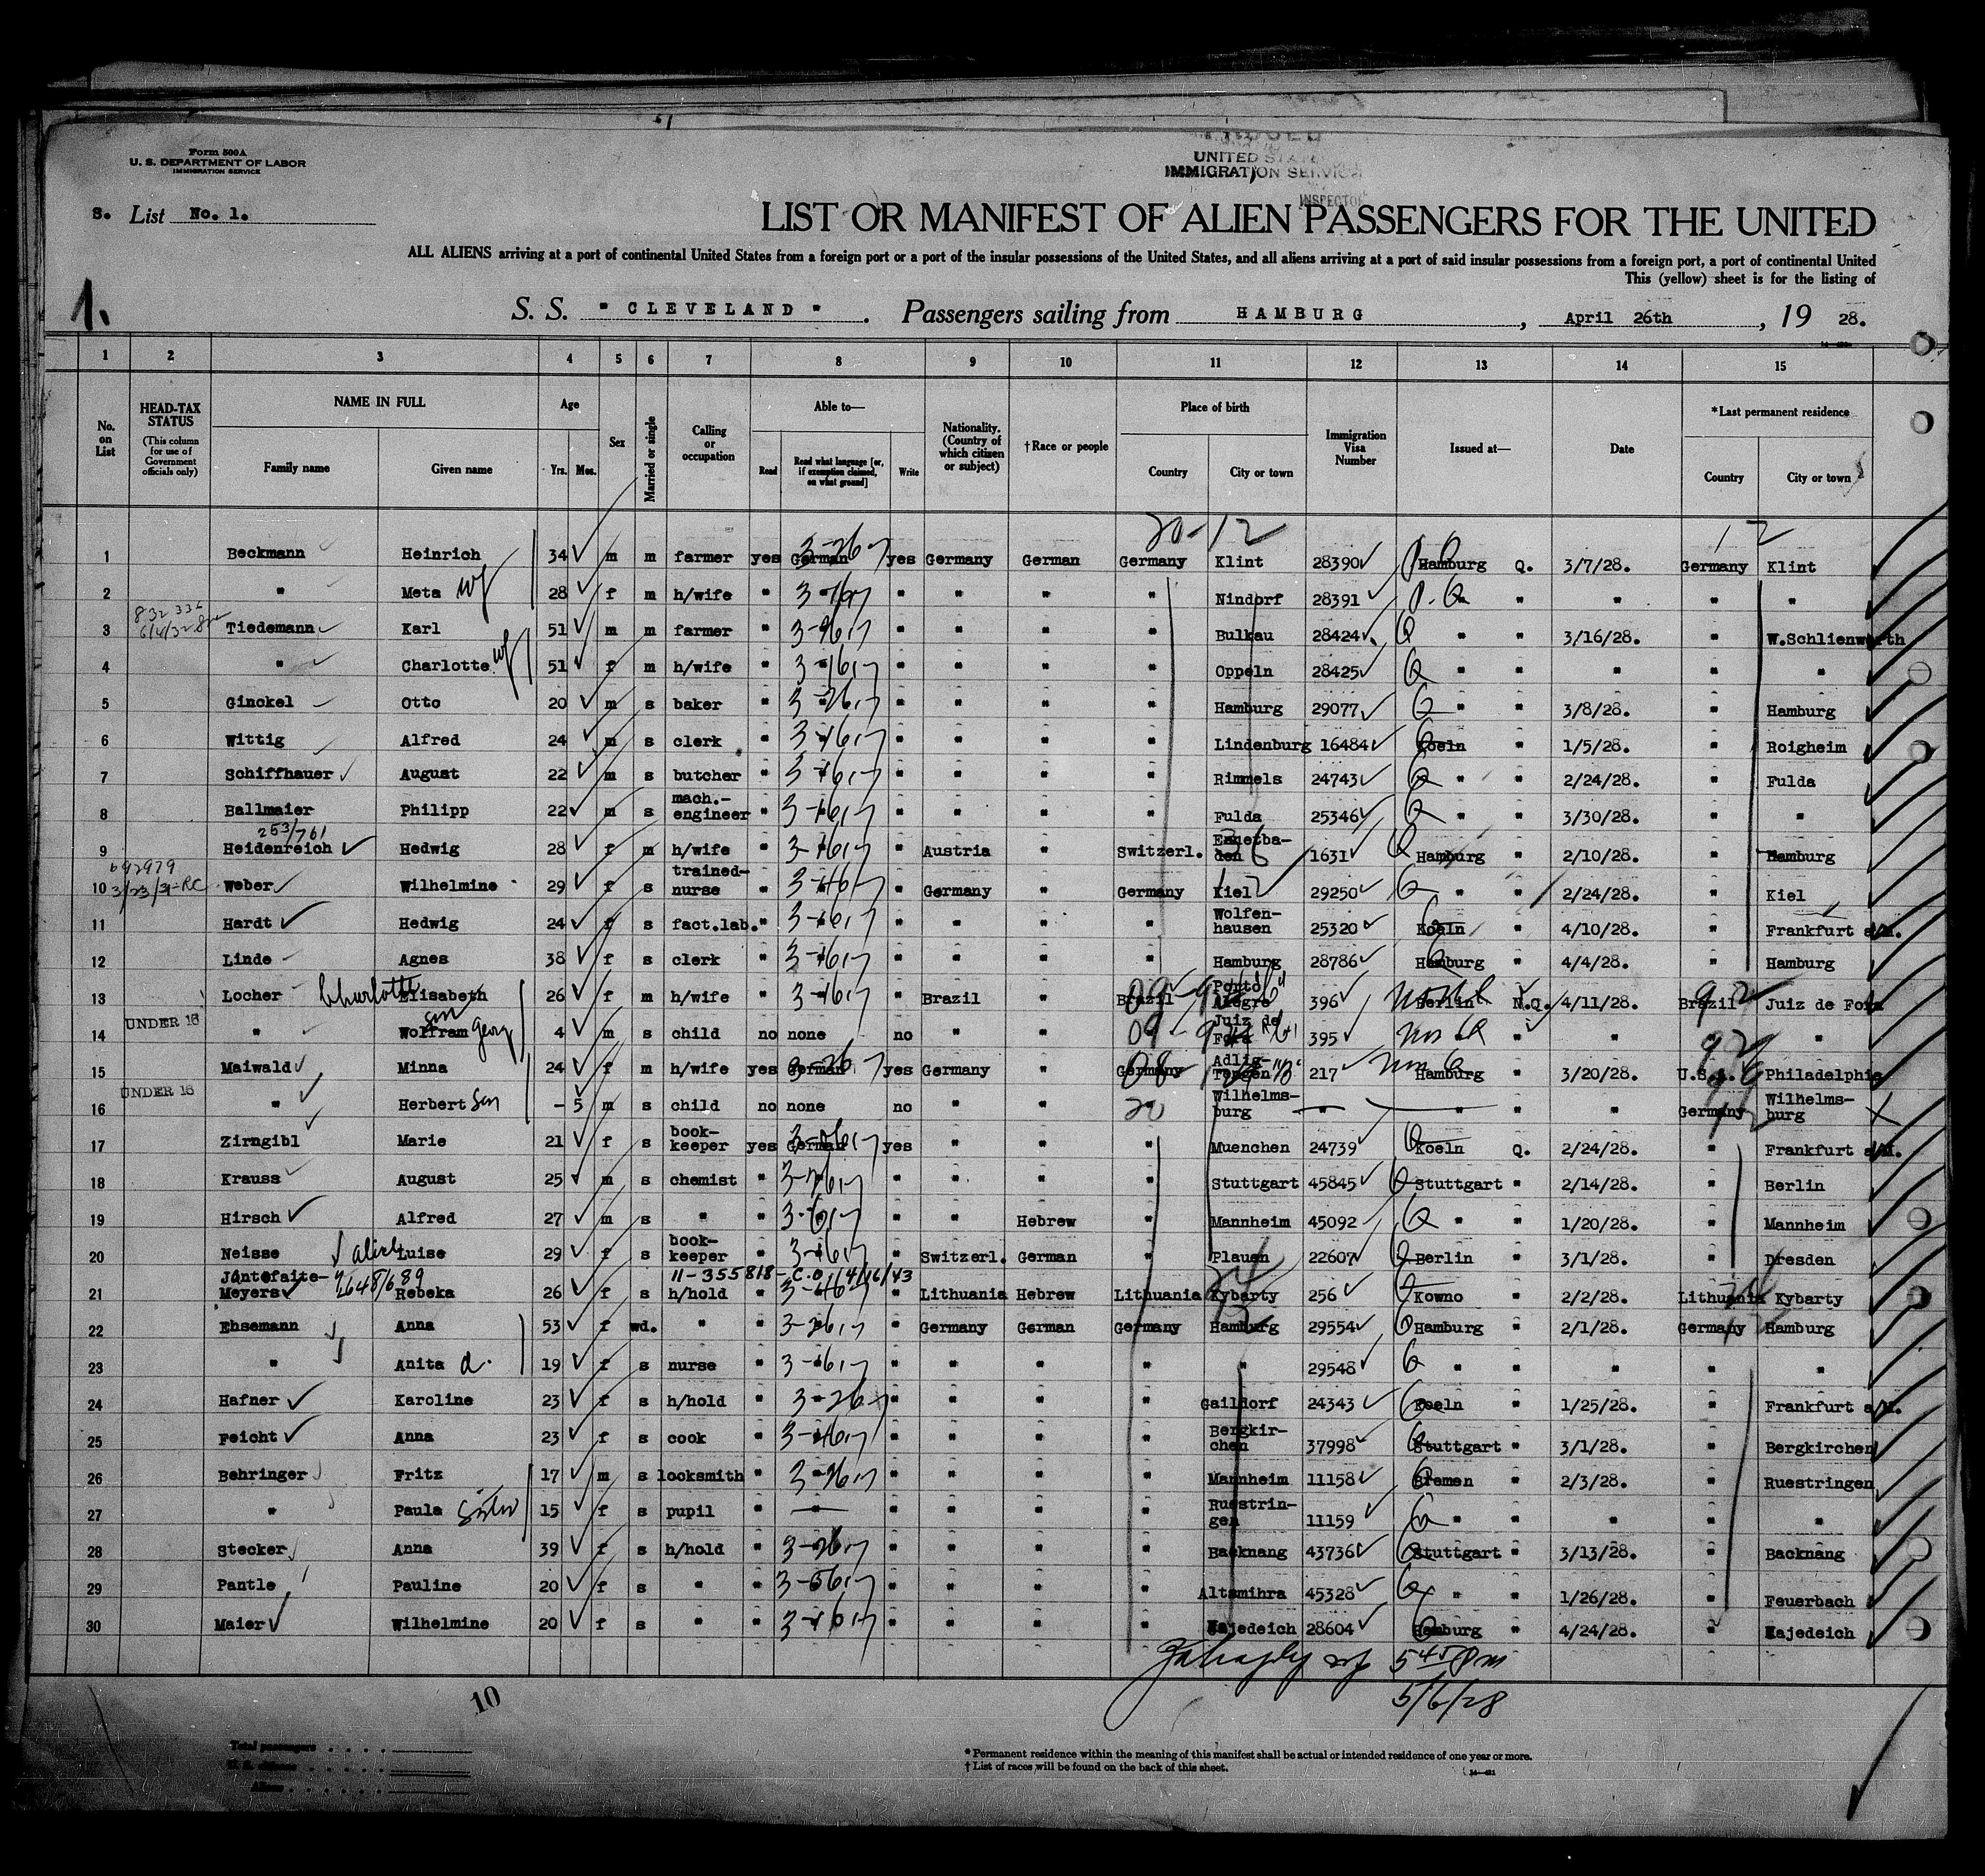 Form 500A
U. S. DEPARTMENT OF LABOR
IMMIGRATION SERVICE
UNITED STATES
IMMIGRATION SERVICE
INSPECTOR
S. List No. 1.
LIST OR MANIFEST OF ALIEN PASSENGERS FOR THE UNITED
ALL ALIENS arriving at a port of continental United States from a foreign port or a port of the insular possessions of the United States, and all aliens arriving at a port of said insular possessions from a foreign port, a port of continental United
This (yellow) sheet is for the listing of
1.
S. S. " CLEVELAND " . Passengers sailing from HAMBURG , April 26th , 19 28.
1 2 3 4 5 6 7 8 9 10 11 12 13 14 15
No. on List HEAD-TAX STATUS (This column for use of Government officials only) NAME IN FULL Family name Given name Age Yrs. Mos. Sex Married or single Calling or occupation Able to— Read Read what language [or, if exemption claimed, on what ground] Write Nationality. (Country of which citizen or subject) †Race or people Place of birth Country City or town Immigration Visa Number Issued at— Date *Last permanent residence Country City or town
20-12 12
1 Beckmann Heinrich 34 m m farmer yes German 3-26-7 yes Germany German Germany Klint 28390 Hamburg Q. 3/7/28. Germany Klint
2 " Meta wf 28 f m h/wife " " " " " " Nindorf 28391 " " " " "
832 336
3 Tiedemann Karl 51 m m farmer " " " " " " Bulkau 28424 " " 3/16/28. " W.Schlienworth
4 " Charlotte wf 51 f m h/wife " " " " " " Oppeln 28425 " " " " "
5 Ginckel Otto 20 m s baker " " " " " " Hamburg 29077 " " 3/8/28. " Hamburg
6 Wittig Alfred 24 m s clerk " " " " " " Lindenburg 16484 Koeln " 1/5/28. " Roigheim
7 Schiffhauer August 22 m s butcher " " " " " " Rimmels 24743 " " 2/24/28. " Fulda
8 Ballmaier Philipp 22 m s mach.-engineer " " " " " " Fulda 25346 " " 3/30/28. " "
253/761
9 Heidenreich Hedwig 28 f m h/wife " " " Austria " Switzerl. Ennetba-den 1631 Hamburg 2/10/28. " Hamburg
692979
3/23/31-RC
10 Weber Wilhelmine 29 f s trained-nurse " " " Germany " Germany Kiel 29250 " " 2/24/28. " Kiel
11 Hardt Hedwig 24 f s fact.lab. " " " " " " Wolfen-hausen 25320 Koeln " 4/10/28. " Frankfurt a/M.
12 Linde Agnes 38 f s clerk " " " " " " Hamburg 28786 Hamburg " 4/4/28. " Hamburg
13 Locher Charlotte Elisabeth 26 f m h/wife " " " Brazil " Brazil Porto Alegre 396 Berlin N.Q. 4/11/28. Brazil Juiz de Fora
UNDER 16
14 " Wolfram Georg son 4 m s child no none no " " " Juiz de Fora 395 " " " " "
15 Maiwald Minna 24 f m h/wife yes German 3-26-7 yes Germany " Germany 217 Hamburg " 3/20/28. U.S.A. Philadelphia
UNDER 16
16 " Herbert Son - 5 m s child no none no " " 20 Wilhelms-burg " " " " Germany Wilhelms-burg
17 Zirngibl Marie 21 f s book-keeper yes German yes " " " Muenchen 24739 Koeln Q. 2/24/28. " Frankfurt a/M.
18 Krauss August 25 m s chemist " " " " " " Stuttgart 45845 Stuttgart " 2/14/28. " Berlin
19 Hirsch Alfred 27 m s " " " " " Hebrew " Mannheim 45092 " " 1/20/28. " Mannheim
20 Neisse Luise 29 f s book-keeper " " " Switzerl. German " Plauen 22607 Berlin " 3/1/28. " Dresden
11-355818-C.O. 4/16/43
21 Jantofaite-Meyers Rebeka 26 f s h/hold " " " Lithuania Hebrew Lithuania Kybarty 256 Kowno " 2/2/28. Lithuania Kybarty
22 Ehsemann Anna 53 f wd. " " " " Germany German Germany Hamburg 29554 Hamburg " 2/1/28. Germany Hamburg
23 " Anita d. 19 f s nurse " " " " " " " 29548 " " " " "
24 Hafner Karoline 23 f s h/hold " 3-26-7 " " " " Gaildorf 24343 Koeln " 1/25/28. " Frankfurt a/M.
25 Feicht Anna 23 f s cook " " " " " " Bergkir-chen 37998 Stuttgart " 3/1/28. " Bergkirchen
26 Behringer Fritz 17 m s locksmith " " " " " " Mannheim 11158 Bremen " 2/3/28. " Ruestringen
27 " Paula Sister 15 f s pupil " " " " " " Ruestrin-gen 11159 " " " " "
28 Stecker Anna 39 f s h/hold " " " " " " Backnang 43736 Stuttgart " 3/13/28. " Backnang
29 Pantle Pauline 20 f s " " " " " " " Altsmihra 45328 " " 1/26/28. " Feuerbach
30 Maier Wilhelmine 20 f s " " " " " " " Kajedeich 28604 Hamburg " 4/24/28. " Kajedeich
5 45 Pm
5/6/28
10
Total passengers
U. S. citizens
Aliens
* Permanent residence within the meaning of this manifest shall be actual or intended residence of one year or more.
† List of races will be found on the back of this sheet.